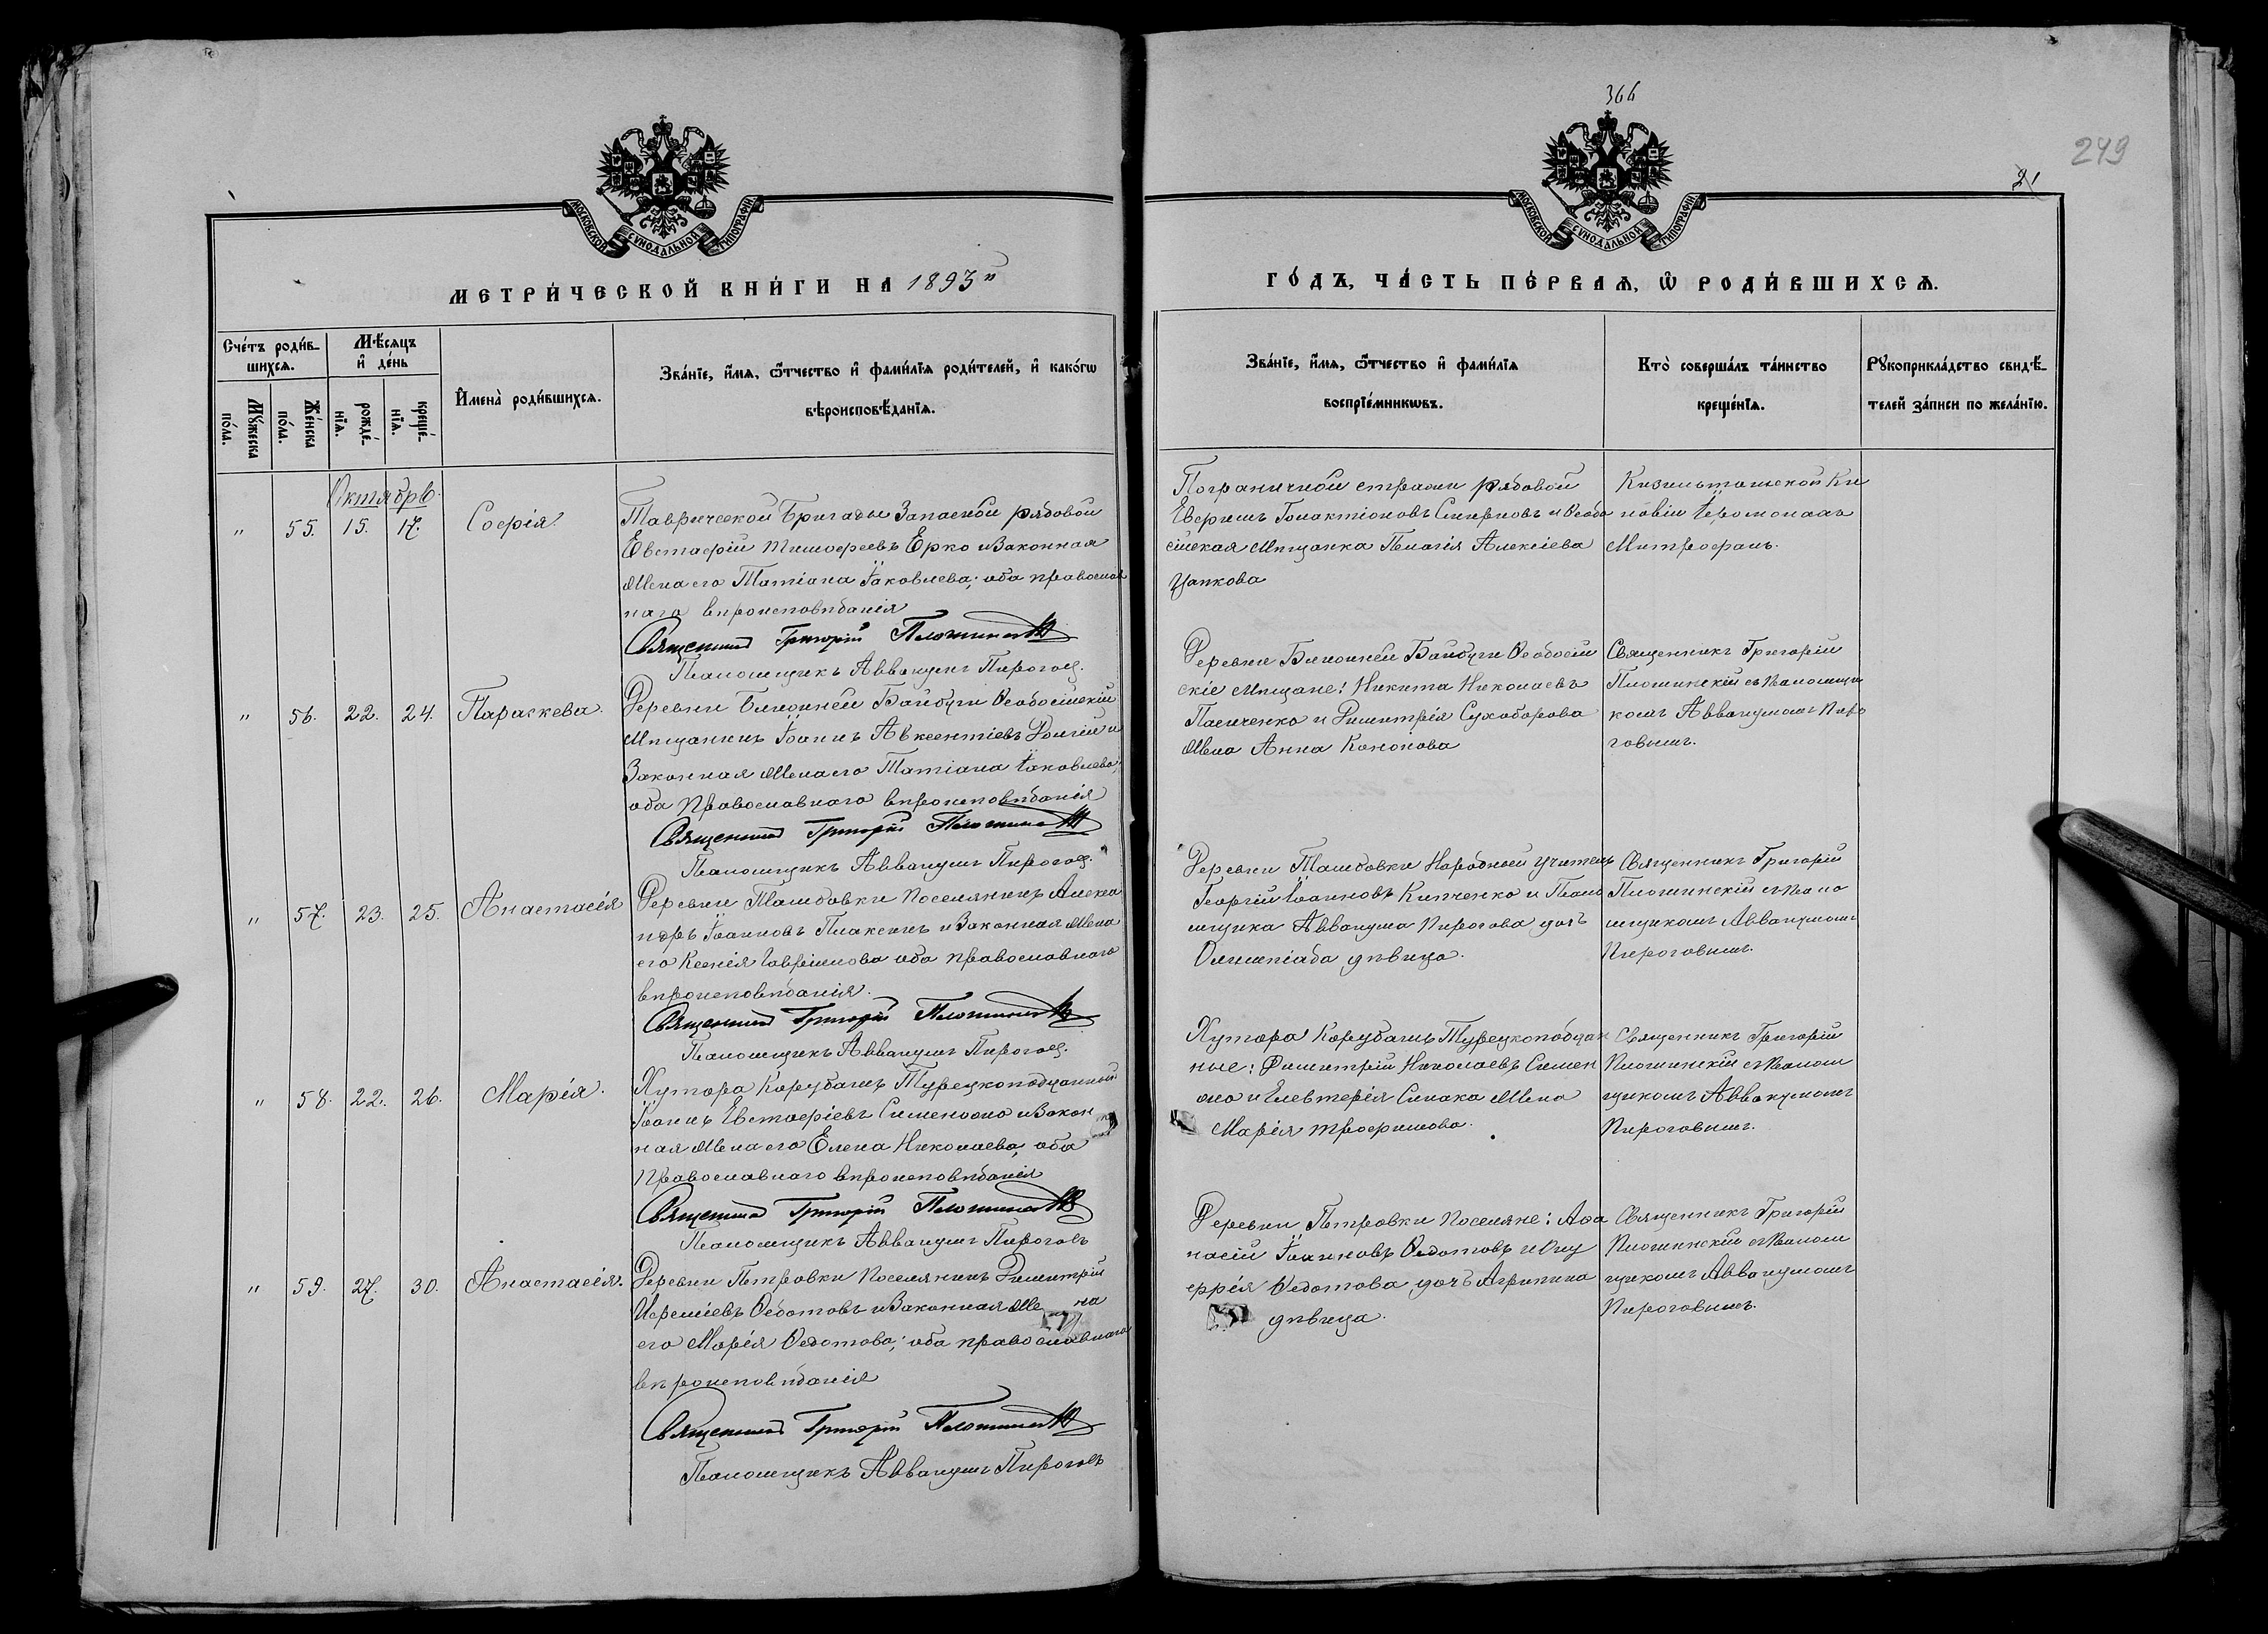 366
249
21
МОСКОВСКОЙ СѴНОДАЛЬНОЙ ТИПОГРАФІИ
МОСКОВСКОЙ СѴНОДАЛЬНОЙ ТИПОГРАФІИ
МЕТРИ́ЧЕСКОЙ КНИ́ГИ НА 1893й
ГО́ДЪ, ЧА́СТЬ ПЕ́РВАѦ, Ѽ РОДИ́ВШИХСѦ.
Сче́тъ роди́в-
шихсѧ.
Мꙋ́жеска
по́ла.
Же́нска
по́ла.
Мѣ́сѧцъ
и҆ де́нь
рожде́-
нїѧ.
креще́-
нїѧ.
И҆мена̀ роди́вшихсѧ.
Зва́нїе, и҆́мѧ, ѻ҆́тчество и҆ фами́лїѧ роди́телей, и҆ како́гѡ
вѣроисповѣ́данїѧ.
Зва́нїе, и҆́мѧ, ѻ҆́тчество и҆ фами́лїѧ
воспрїе́мникѡвъ.
Кто̀ соверша́лъ та́инство
креще́нїѧ.
Рꙋкоприкла́дство свидѣ́-
телей за́писи по жела́нїю.
Октябрь.
" 55. 15. 17. Софія
Таврической Бригады Запасной рядовой
Евстафій Тимофеевъ Ерко и Законная
Жена его Татіана Іаковлева; оба православ
наго вѣроисповѣданія
Священникъ Григорій
Псаломщикъ Аввакумъ Пирогов
Пограничной стражи рядовой
Евфимъ Галактіоновъ Смирновъ и Ѳеодо
сійская Мѣщанка Пелагія Алексіева
Цапкова
Кизильташской Ки
новіи Іеромонахъ
Митрофанъ.
" 56. 22. 24. Параскева.
Деревни Ближней Байбуги Ѳеодосійскій
Мѣщанинъ Іоаннъ Авксентіевъ Долгій и
Законная Жена его Татіана Іаковлева;
оба Православнаго вѣроисповѣданія
Священникъ Григорій
Псаломщикъ Аввакумъ Пирогов
Деревни Ближней Байбуги Ѳеодосій
скіе Мѣщане: Никита Николаевъ
Пасиченко и Димитрія Сухоборова
Жена Анна Кононова
Священникъ Григорій
Плошинскій съ Псаломщи
комъ Аввакумомъ Пиро
говымъ.
" 57. 23. 25. Анастасія
Деревни Ташбовки Поселянинъ Алекса
ндръ Іоанновъ Плаксинъ и Законная Жена
его Ксенія Гавріилова оба православнаго
вѣроисповѣданія.
Священникъ Григорій
Псаломщикъ Аввакумъ Пирогов
Деревни Ташбовки Народный Учитель
Георгій Іоанновъ Кипченко и Псало
мщика Аввакума Пирогова дочь
Олимпіада дѣвица.
Священникъ Григорій
Плошинскій съ Псало
мщикомъ Аввакумомъ
Пироговымъ.
" 58. 22. 26. Марія.
Хутора Корубашъ Турецкоподданный
Іоаннъ Евстафіевъ Сименогло и Закон
ная Жена его Елена Николаева, оба
Православнаго вѣроисповѣданія
Священникъ Григорій
Псаломщикъ Аввакумъ Пироговъ
Хутора Корубашъ Турецкоподдан
ные: Димитрій Николаевъ Симен
огло и Елевтерія Симака Жена
Марія Трофимова.
Священникъ Григорій
Плошинскій съ Псалом
щикомъ Аввакумомъ
Пироговымъ.
" 59. 27. 30. Анастасія.
Деревни Петровки Поселянинъ Димитрій
Іереміевъ Ѳедотовъ и Законная Же на
его Марія Ѳедотова; оба православнаго
вѣроисповѣданія
Священникъ Григорій
Псаломщикъ Аввакумъ Пироговъ
Деревни Петровки Поселяне: Аѳа
насій Іоанновъ Ѳедотовъ и Ону
фрія Ѳедотова дочь Агрипина
дѣвица.
Священникъ Григорій
Плошинскій съ Псалом
щикомъ Аввакумомъ
Пироговымъ.